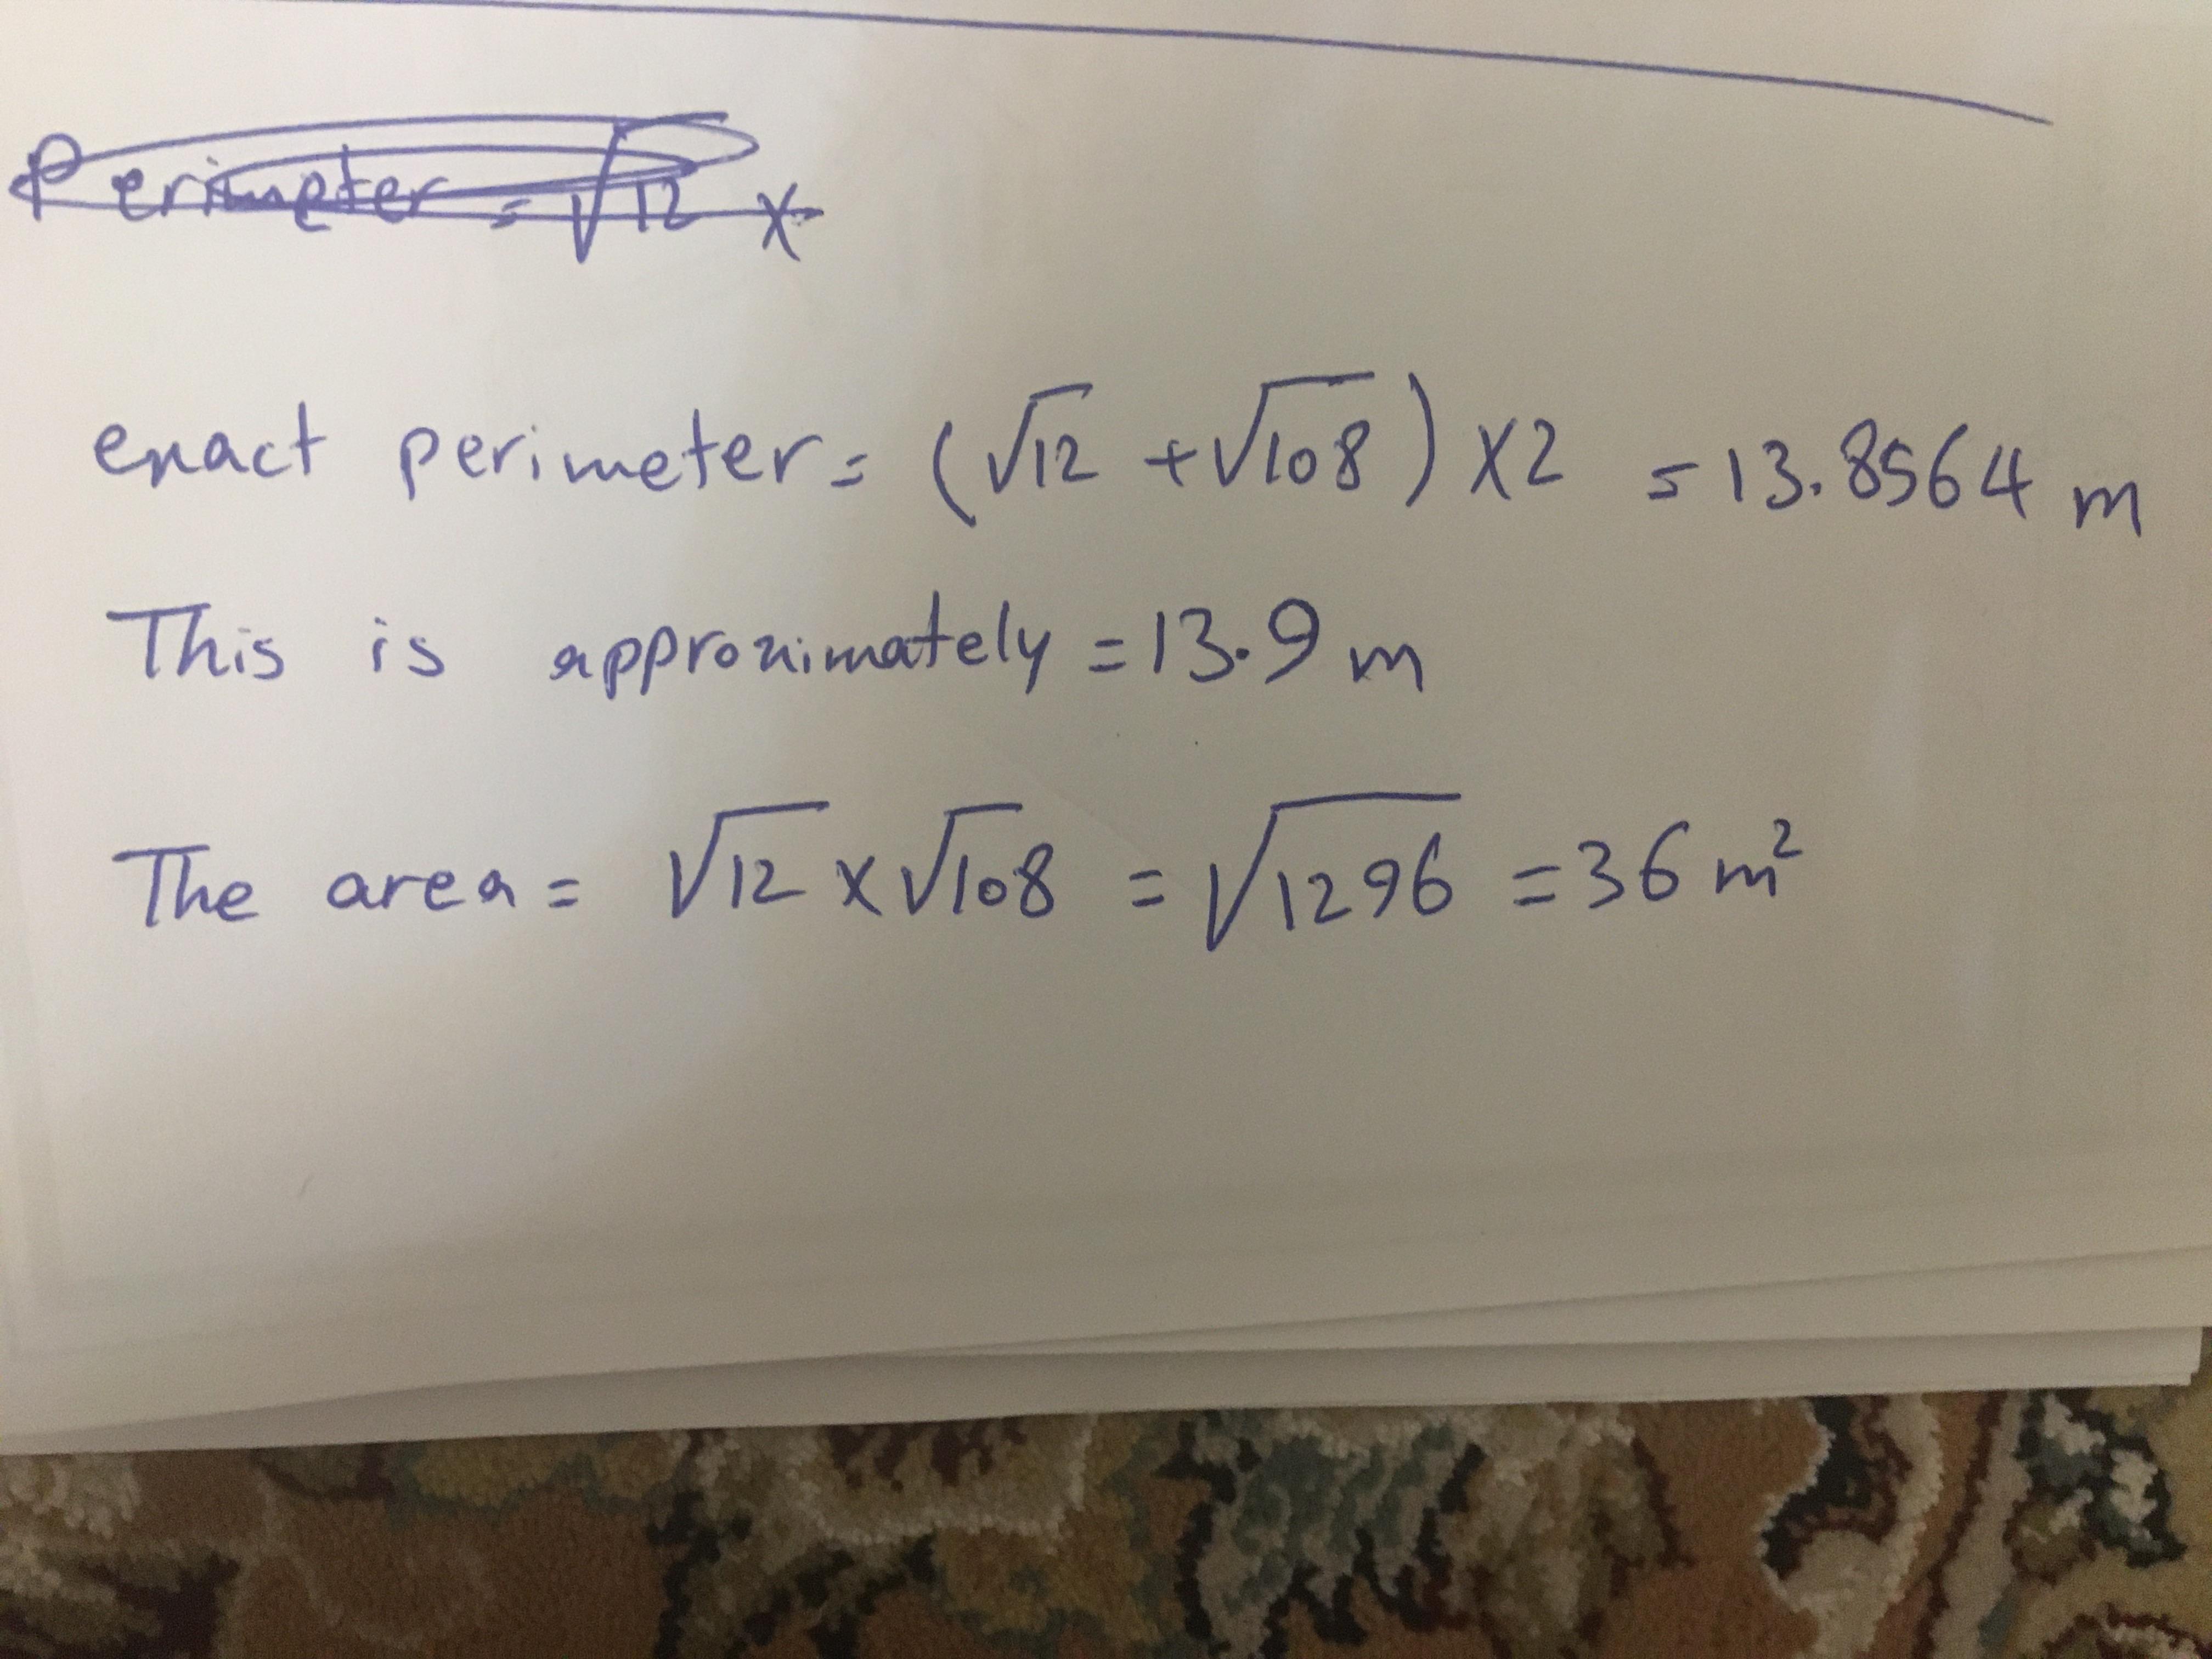 Perimeter = √12 ×
exact perimeter = (√12 + √108) × 2 = 13.8564 m
This is approximately = 13.9 m
The area = √12 × √108 = √1296 = 36 m²